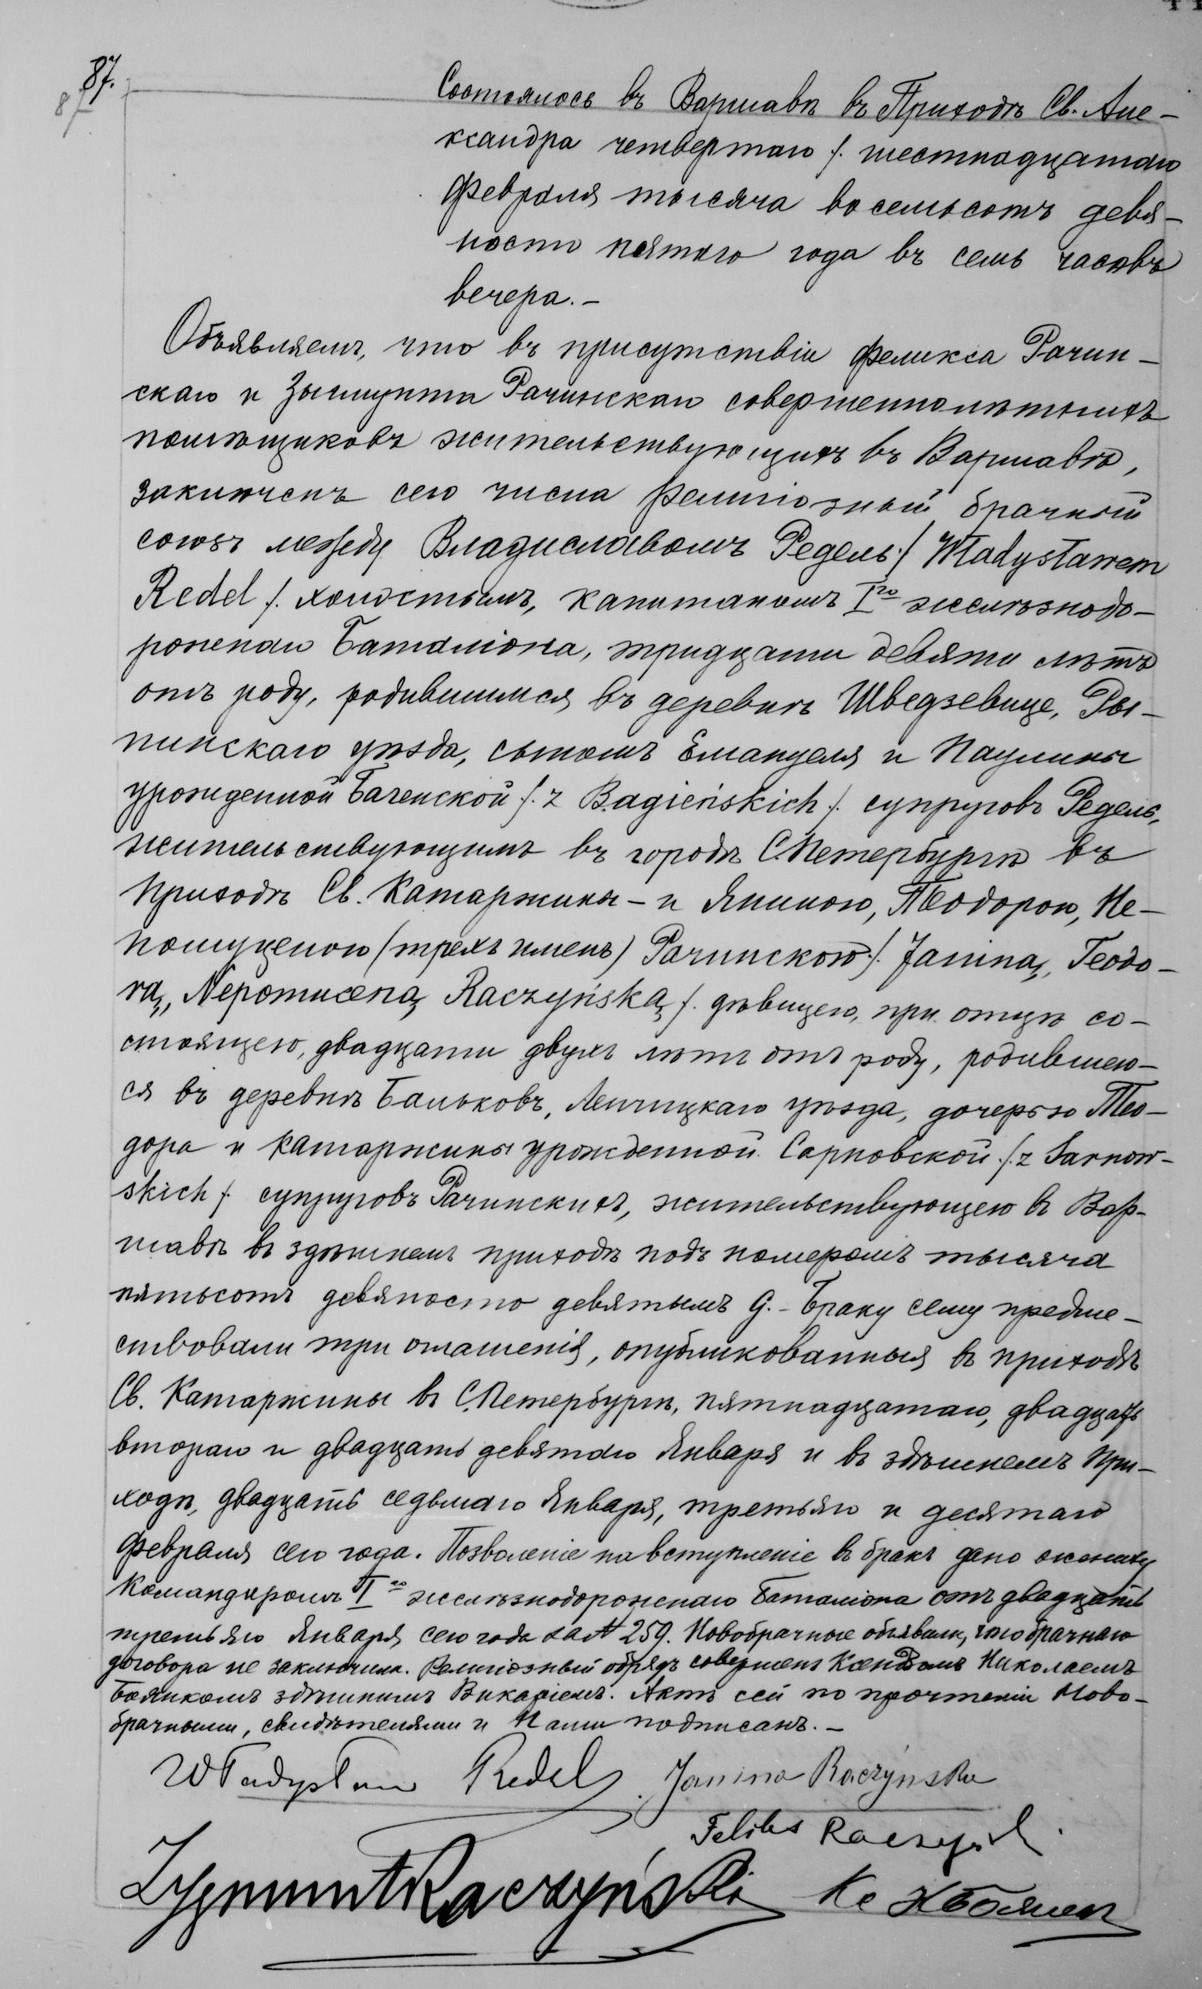 87.
87
Состоялось въ Варшавѣ въ Приходѣ Св. Але-
ксандра четвертаго /. шестнадцатаго
Февраля тысяча восемьсотъ девя-
носто пятаго года въ семь часовъ
вечера. –
Объявляемъ, что въ присутствіи Феликса Рачин-
скаго и Зыгмунта Рачинскаго совершеннолѣтнихъ
помѣщиковъ жительствующихъ въ Варшавѣ,
заключенъ сего числа религіозный брачный
союзъ между Владиславомъ Редель /. Władysławem
Redel /. холостымъ, капитаномъ Iго желѣзнодо-
рожнаго Баталіона, тридцати девяти лѣтъ
отъ роду, родившимся въ деревнѣ Шведзевице, Ры-
пинскаго уѣзда, сыномъ Емануеля и Паулины
урожденной Багенской /. z Bagieńskich /. супруговъ Редель,
жительствующимъ въ городѣ С.Петербургѣ въ
Приходѣ Св. Катаржины – и Яниною, Теодорою, Не-
помуценою (трехъ именъ) Рачинскою /. Janiną, Teodo-
rą, Nepomuceną Raczyńską /. дѣвицею, при отцѣ со-
стоящею, двадцати двухъ лѣтъ отъ роду, родившею-
ся въ деревнѣ Баньковъ, Ленчицкаго уѣзда, дочерью Тео-
дора и Катаржины урожденной Сарновской /. z Sarnow-
skich /. супруговъ Рачинскихъ, жительствующею въ Вар-
шавѣ въ здѣшнемъ приходѣ подъ номеромъ тысяча
пятьсотъ девяносто девятымъ G. – Браку сему предше-
ствовали три оглашенія, опубликованныя въ приходѣ
Св. Катаржины въ С.Петербургѣ, пятнадцатаго, двадцать
втораго и двадцать девятаго Января и въ здѣшнемъ При-
ходѣ, двадцать седьмаго Января, третьяго и десятаго
Февраля сего года. Позволеніе на вступленіе въ бракъ дано жениху
Командиромъ Iго желѣзнодорожнаго Баталіона отъ двадцать
третьяго Января сего года за № 259. Новобрачные объявили, что брачнаго
договора не заключили. Религіозный обрядъ совершенъ Ксендзомъ Николаемъ
здѣшнимъ Викаріемъ. Актъ сей по прочтеніи Ново-
брачными, свидѣтелями и Нами подписанъ. –
Władysław Redel. Janina Raczyńska
Feliks Raczyński.
Zygmunt Raczyński